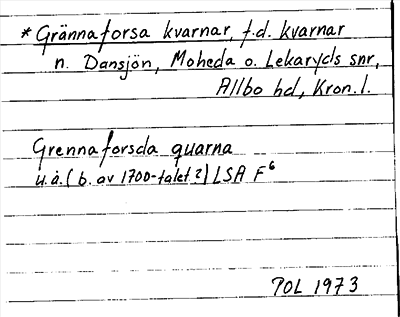 * Grännaforsa kvarnar, f.d. kvarnar
n. Dansjön, Moheda o. Lekaryds snr,
Allbo hd, Kron.l.
Grennaforsda quarna
u.å. (b. av 1700-talet?) LSA F6
POL 1973